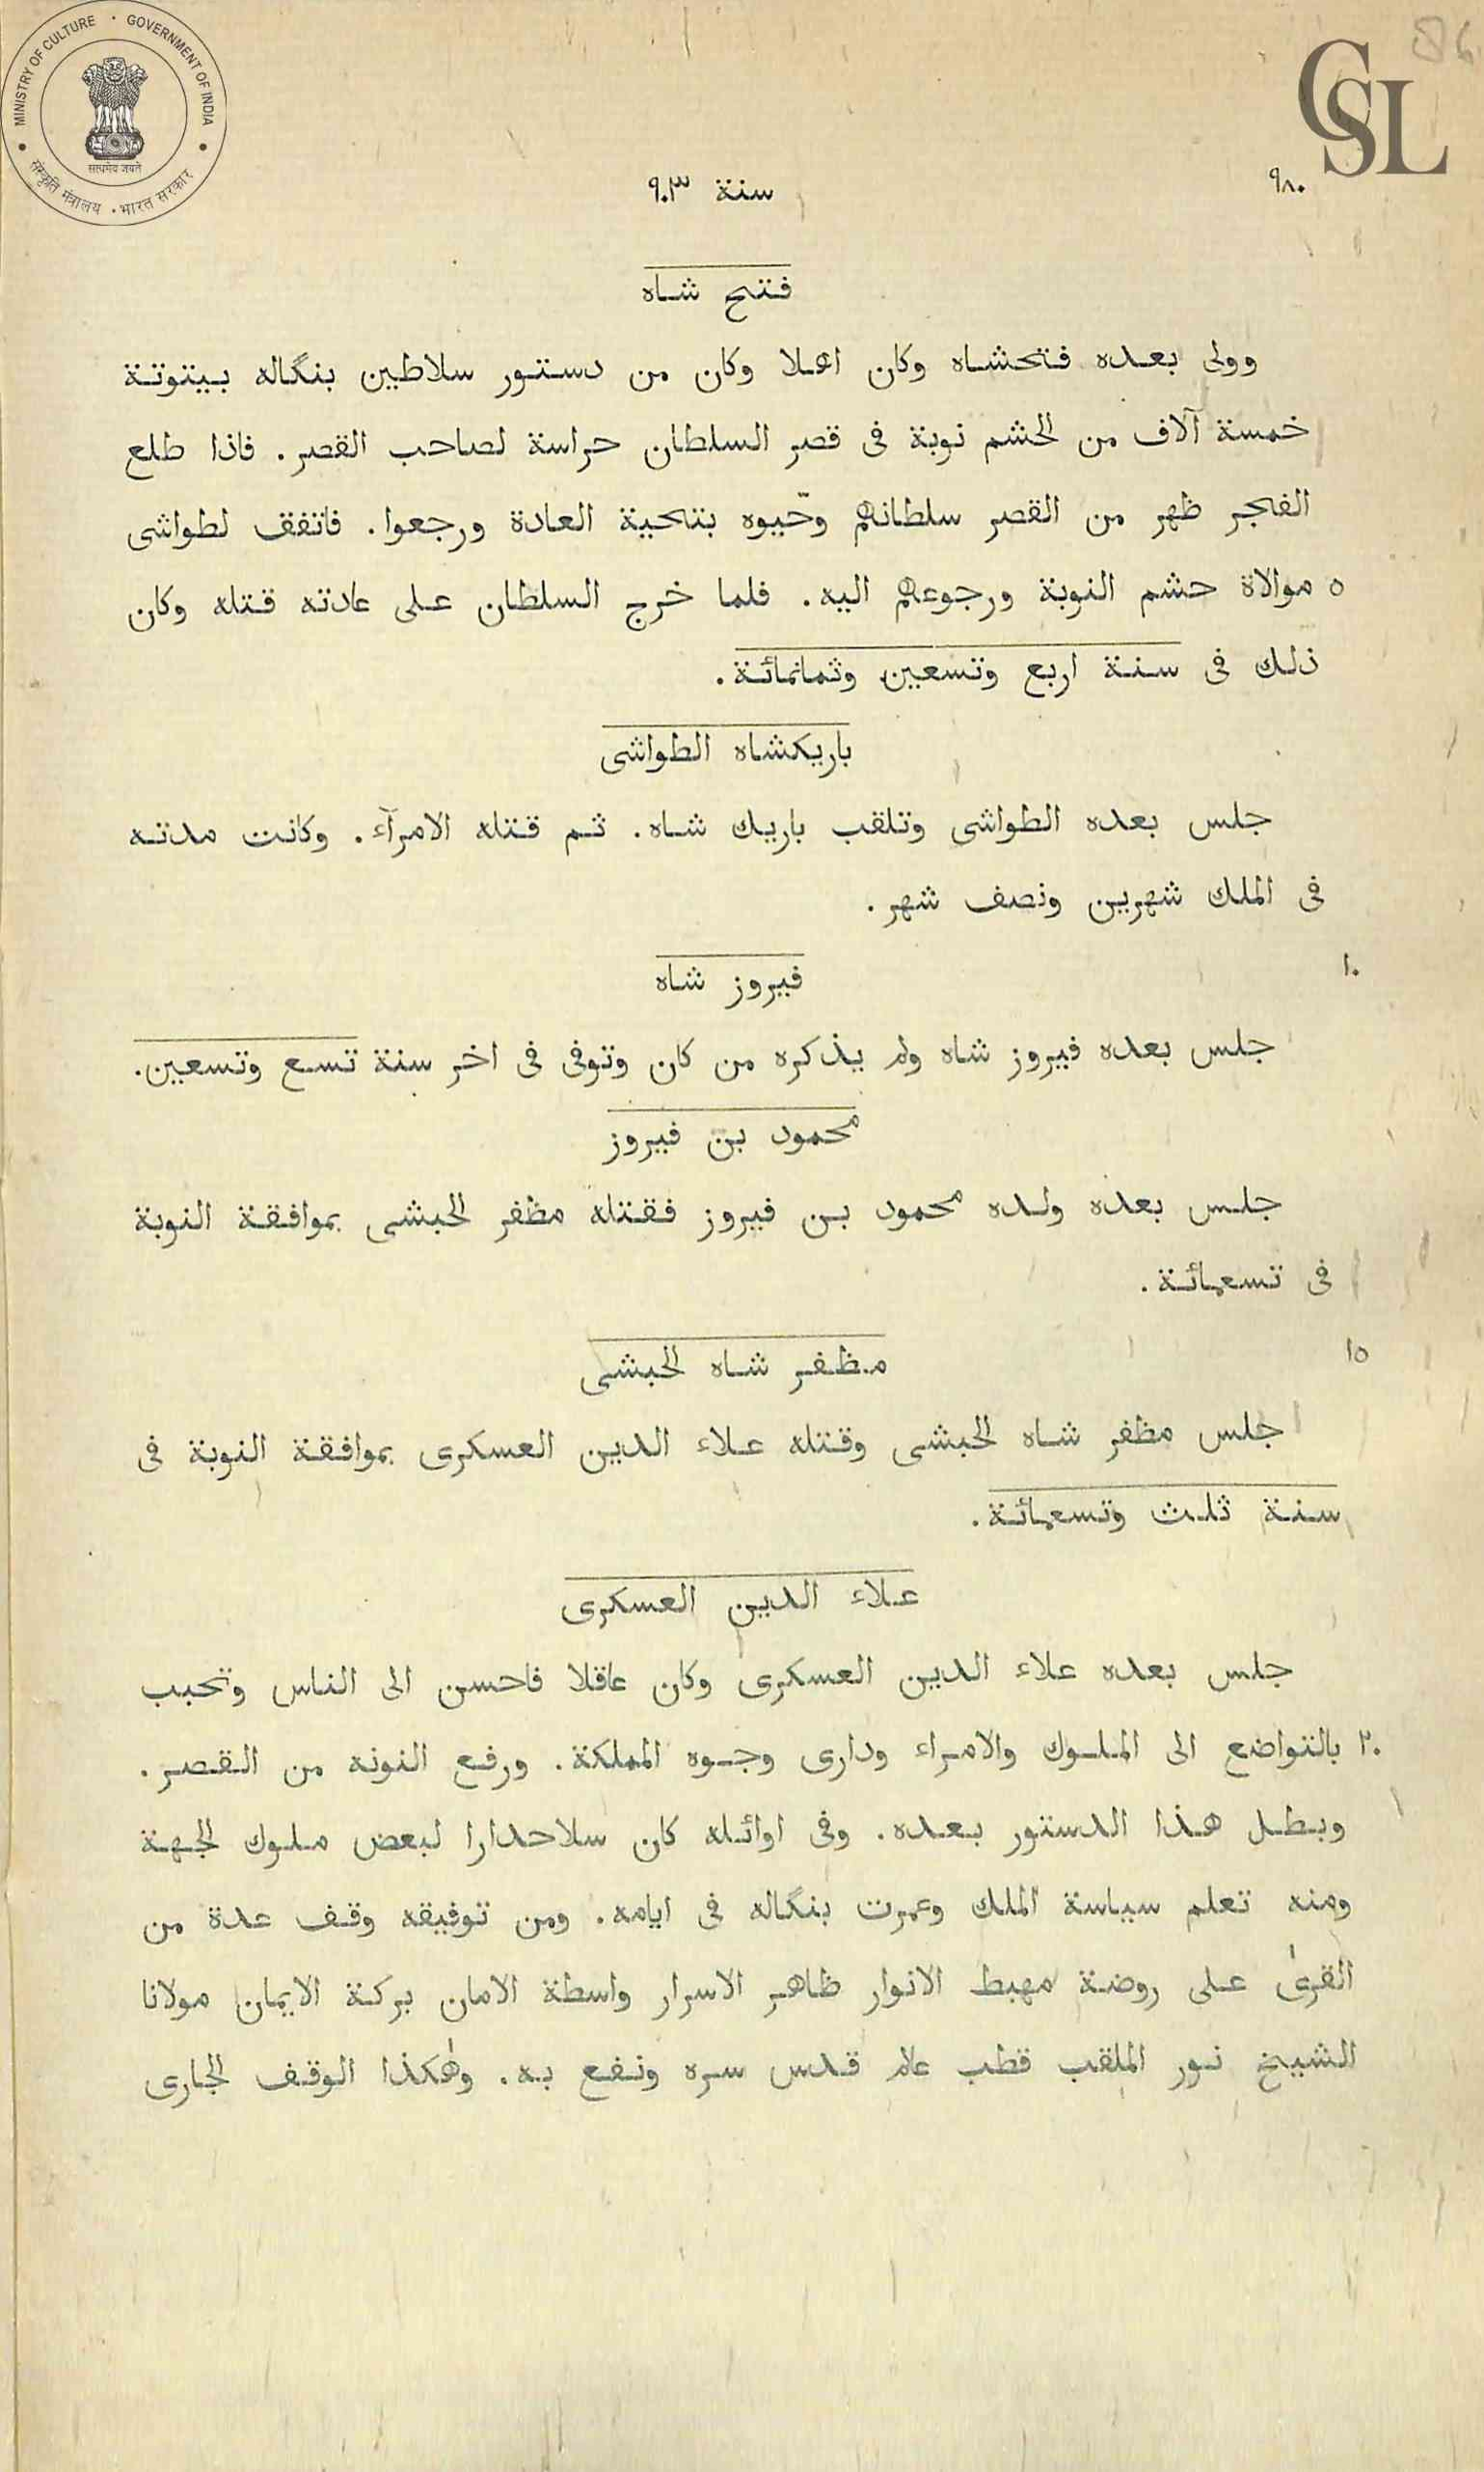 MINISTRY OF CULTURE · GOVERNMENT OF INDIA
सत्यमेव जयते
संस्कृति मंत्रालय · भारत सरकार
CSL
٩٨٠
سنة ٩٠٣
فتح شاه
وولى بعده فتحشاه وكان اعلا وكان من دستور سلاطين بنگاله بيتوتة
خمسة آلاف من الحشم نوبة فى قصر السلطان حراسة لصاحب القصر. فاذا طلع
الفجر ظهر من القصر سلطانهم وحّيوه بتحية العادة ورجعوا. فاتفق لطواشى
٥ موالاة حشم النوبة ورجوعهم اليه. فلما خرج السلطان على عادته قتله وكان
ذلك فى سنة اربع وتسعين وثمانمائة.
باريكشاه الطواشى
جلس بعده الطواشى وتلقب باريك شاه. ثم قتله الامرآء. وكانت مدته
فى الملك شهرين ونصف شهر.
١٠
فيروز شاه
جلس بعده فيروز شاه ولم يذكره من كان وتوفى فى اخر سنة تسع وتسعين.
محمود بن فيروز
جلس بعده ولده محمود بن فيروز فقتله مظفر الحبشى بموافقة النوبة
فى تسعمائة.
١٥
مظفر شاه الحبشى
جلس مظفر شاه الحبشى وقتله علاء الدين العسكرى بموافقة النوبة فى
سنة ثلث وتسعمائة.
علاء الدين العسكرى
جلس بعده علاء الدين العسكرى وكان عاقلا فاحسن الى الناس وتحبب
٢٠ بالتواضع الى الملوك والامراء ودارى وجوه المملكة. ورفع النونه من القصر.
وبطل هذا الدستور بعده. وفى اوائله كان سلاحدارا لبعض ملوك الجهة
ومنه تعلم سياسة الملك وعمرت بنگاله فى ايامه. ومن توفيقه وقف عدة من
القرىٰ على روضة مهبط الانوار ظاهر الاسرار واسطة الامان بركة الايمان مولانا
الشيخ نور الملقب قطب عالم قدس سره ونفع به. وهٰكذا الوقف الجارى